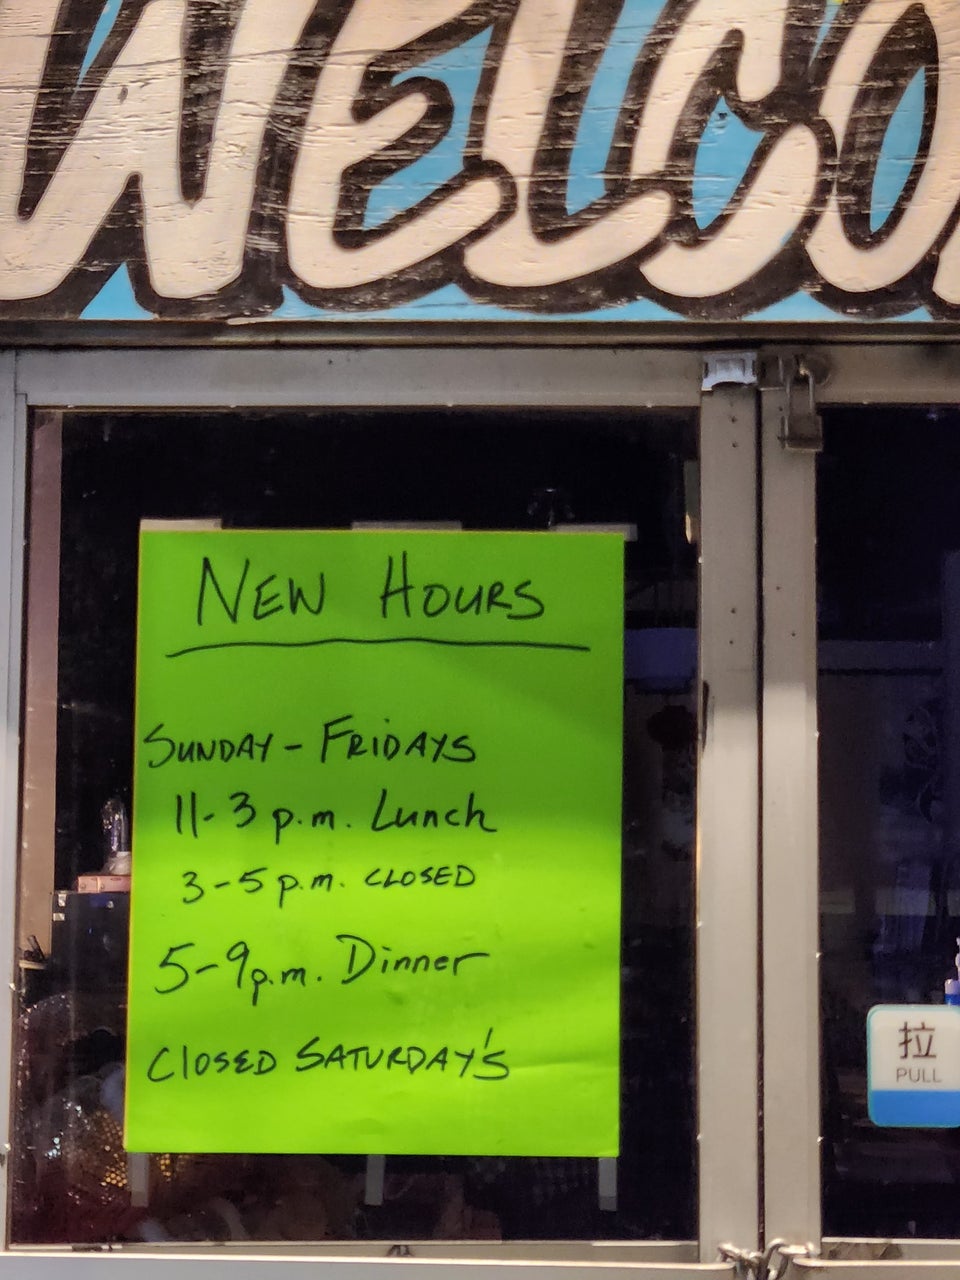 WELCO
NEW HOURS
SUNDAY - FRIDAYS
11-3 p.m. Lunch
3-5 p.m. CLOSED
5-9 p.m. Dinner
CLOSED SATURDAY'S
拉
PULL